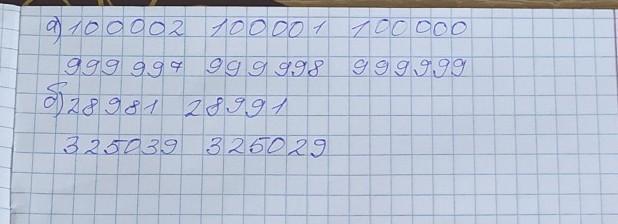 а) 100002 100001 100000
999 997 999 998 999999
б) 28981 28991
325039 325029